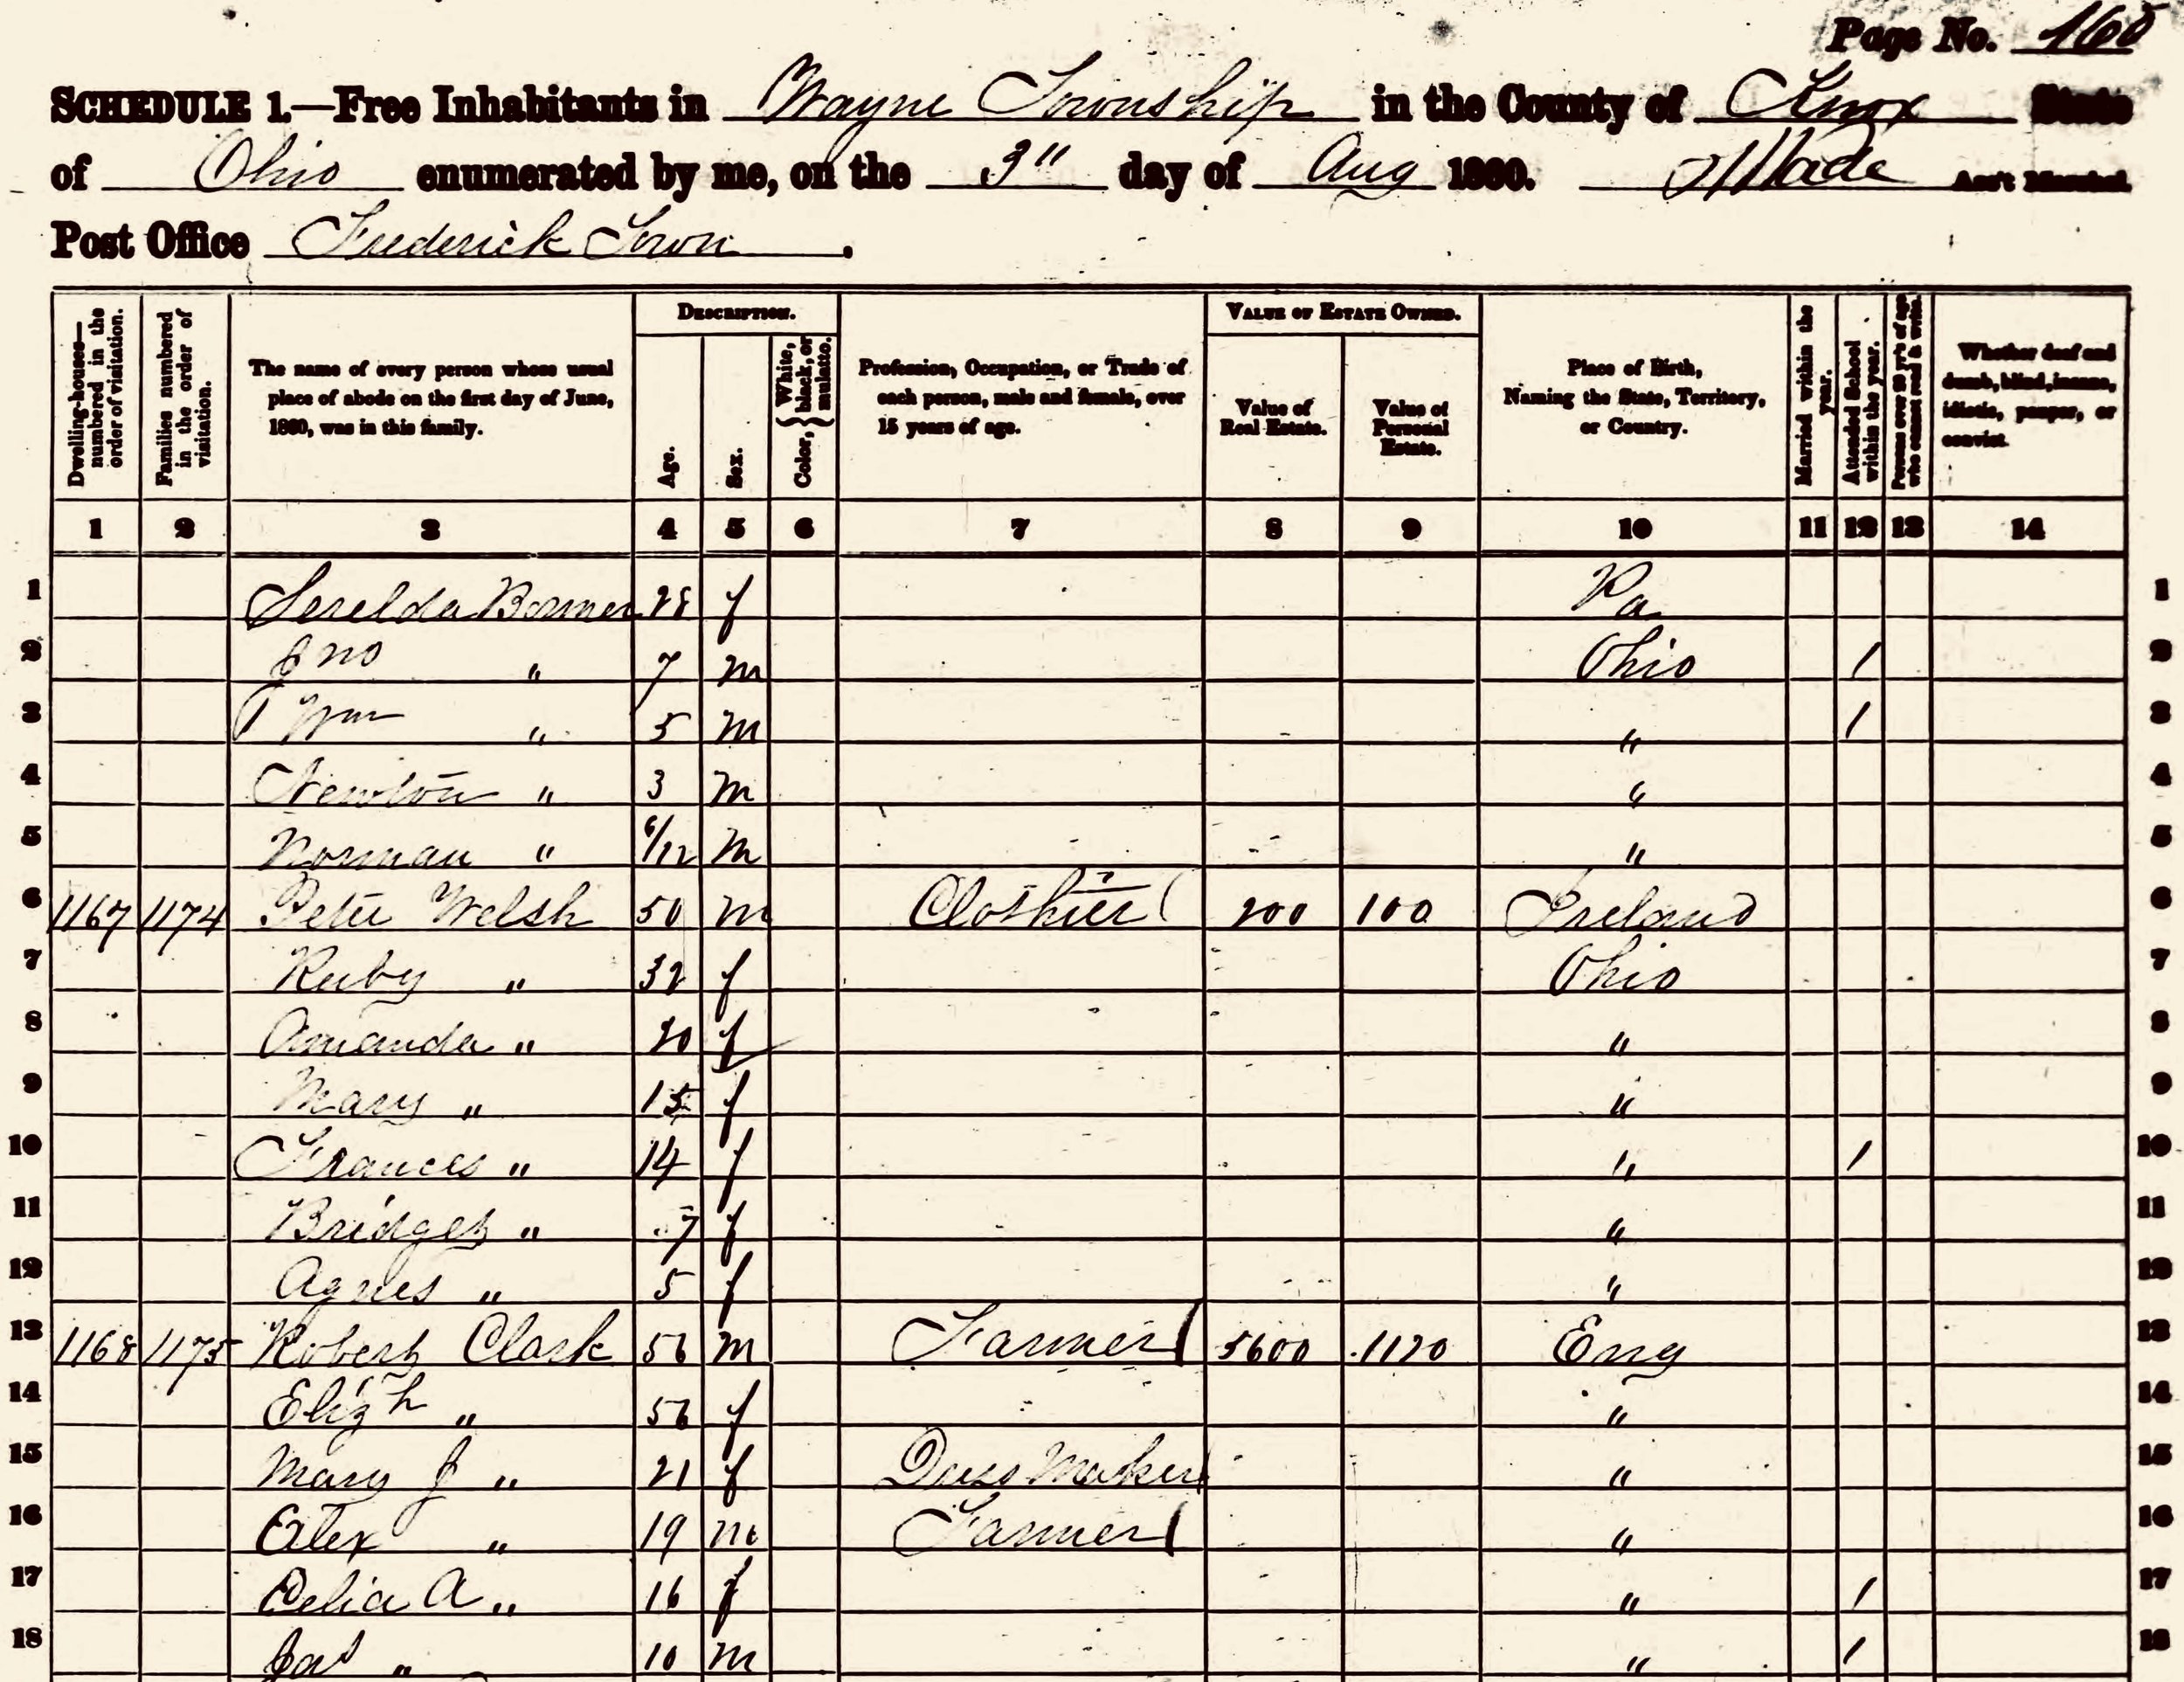 Page No. 160
SCHEDULE 1.—Free Inhabitants in Wayne Township in the County of Knox State
of Ohio enumerated by me, on the 3" day of Aug 1860. Wade Ass't Marshal.
Post Office Frederick Town.
Dwelling-houses—numbered in the order of visitation.
Families numbered in the order of visitation.
The name of every person whose usual place of abode on the first day of June, 1860, was in this family.
DESCRIPTION.
Age.
Sex.
Color, { White, black, or mulatto.
Profession, Occupation, or Trade of each person, male and female, over 15 years of age.
VALUE OF ESTATE OWNED.
Value of Real Estate.
Value of Personal Estate.
Place of Birth, Naming the State, Territory, or Country.
Married within the year.
Attended School within the year.
Persons over 20 y'rs of age who cannot read & write.
Whether deaf and dumb, blind, insane, idiotic, pauper, or convict.
1 2 3 4 5 6 7 8 9 10 11 12 13 14
1 Serelda 28 f Pa 1
2 Jno " 7 m Ohio / 2
3 Wm " 5 m " / 3
4 Newton " 3 m " 4
5 Norman " 6/12 m " 5
6 1167 1174 Peter Welsh 50 m Clothier 200 100 Ireland 6
7 Ruby " 32 f Ohio 7
8 Amanda " 20 f " 8
9 Mary " 15 f " 9
10 Frances " 14 f " / 10
11 Bridget " 7 f " 11
12 Agnes " 5 f " 12
13 1168 1175 Robert Clark 56 m Farmer 5600 1120 Eng 13
14 Elizh " 56 f " 14
15 Mary J " 21 f Dress Maker " 15
16 Alex " 19 m Farmer " 16
17 Delia A " 16 f " / 17
18 Jas " 10 m " / 18